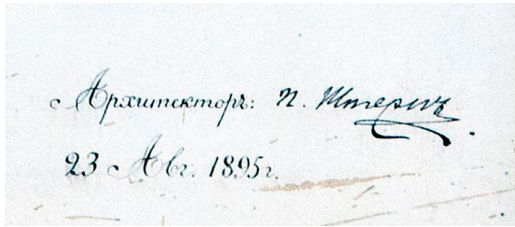 Архитекторъ: П. Штернъ
23 Авг. 1895г.